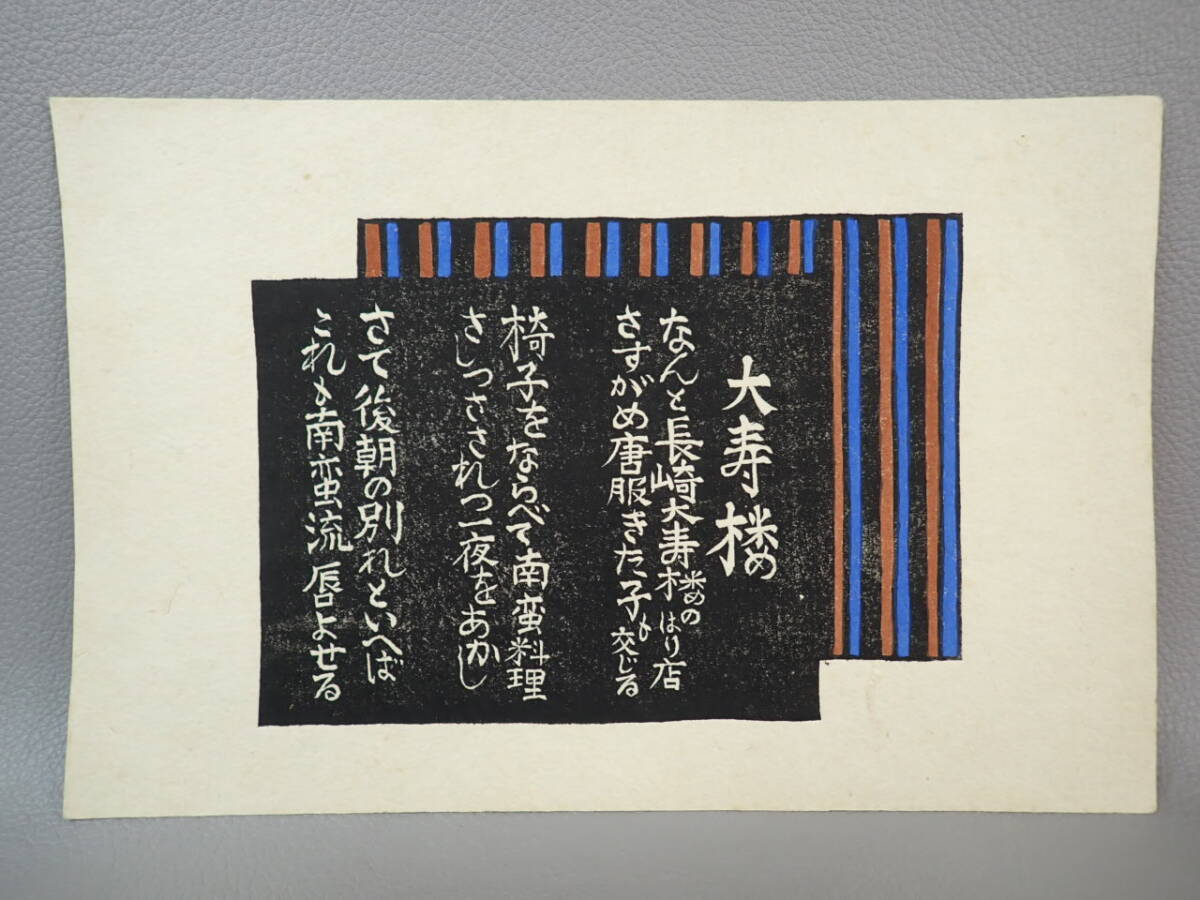 大寿楼
なんと長崎大寿楼のはり店
さすがめ唐服きた子も交じる
椅子をならべて南蛮料理
さしつさされつ一夜をあかし
さて後朝の別れといへば
これも南蛮流唇よせる